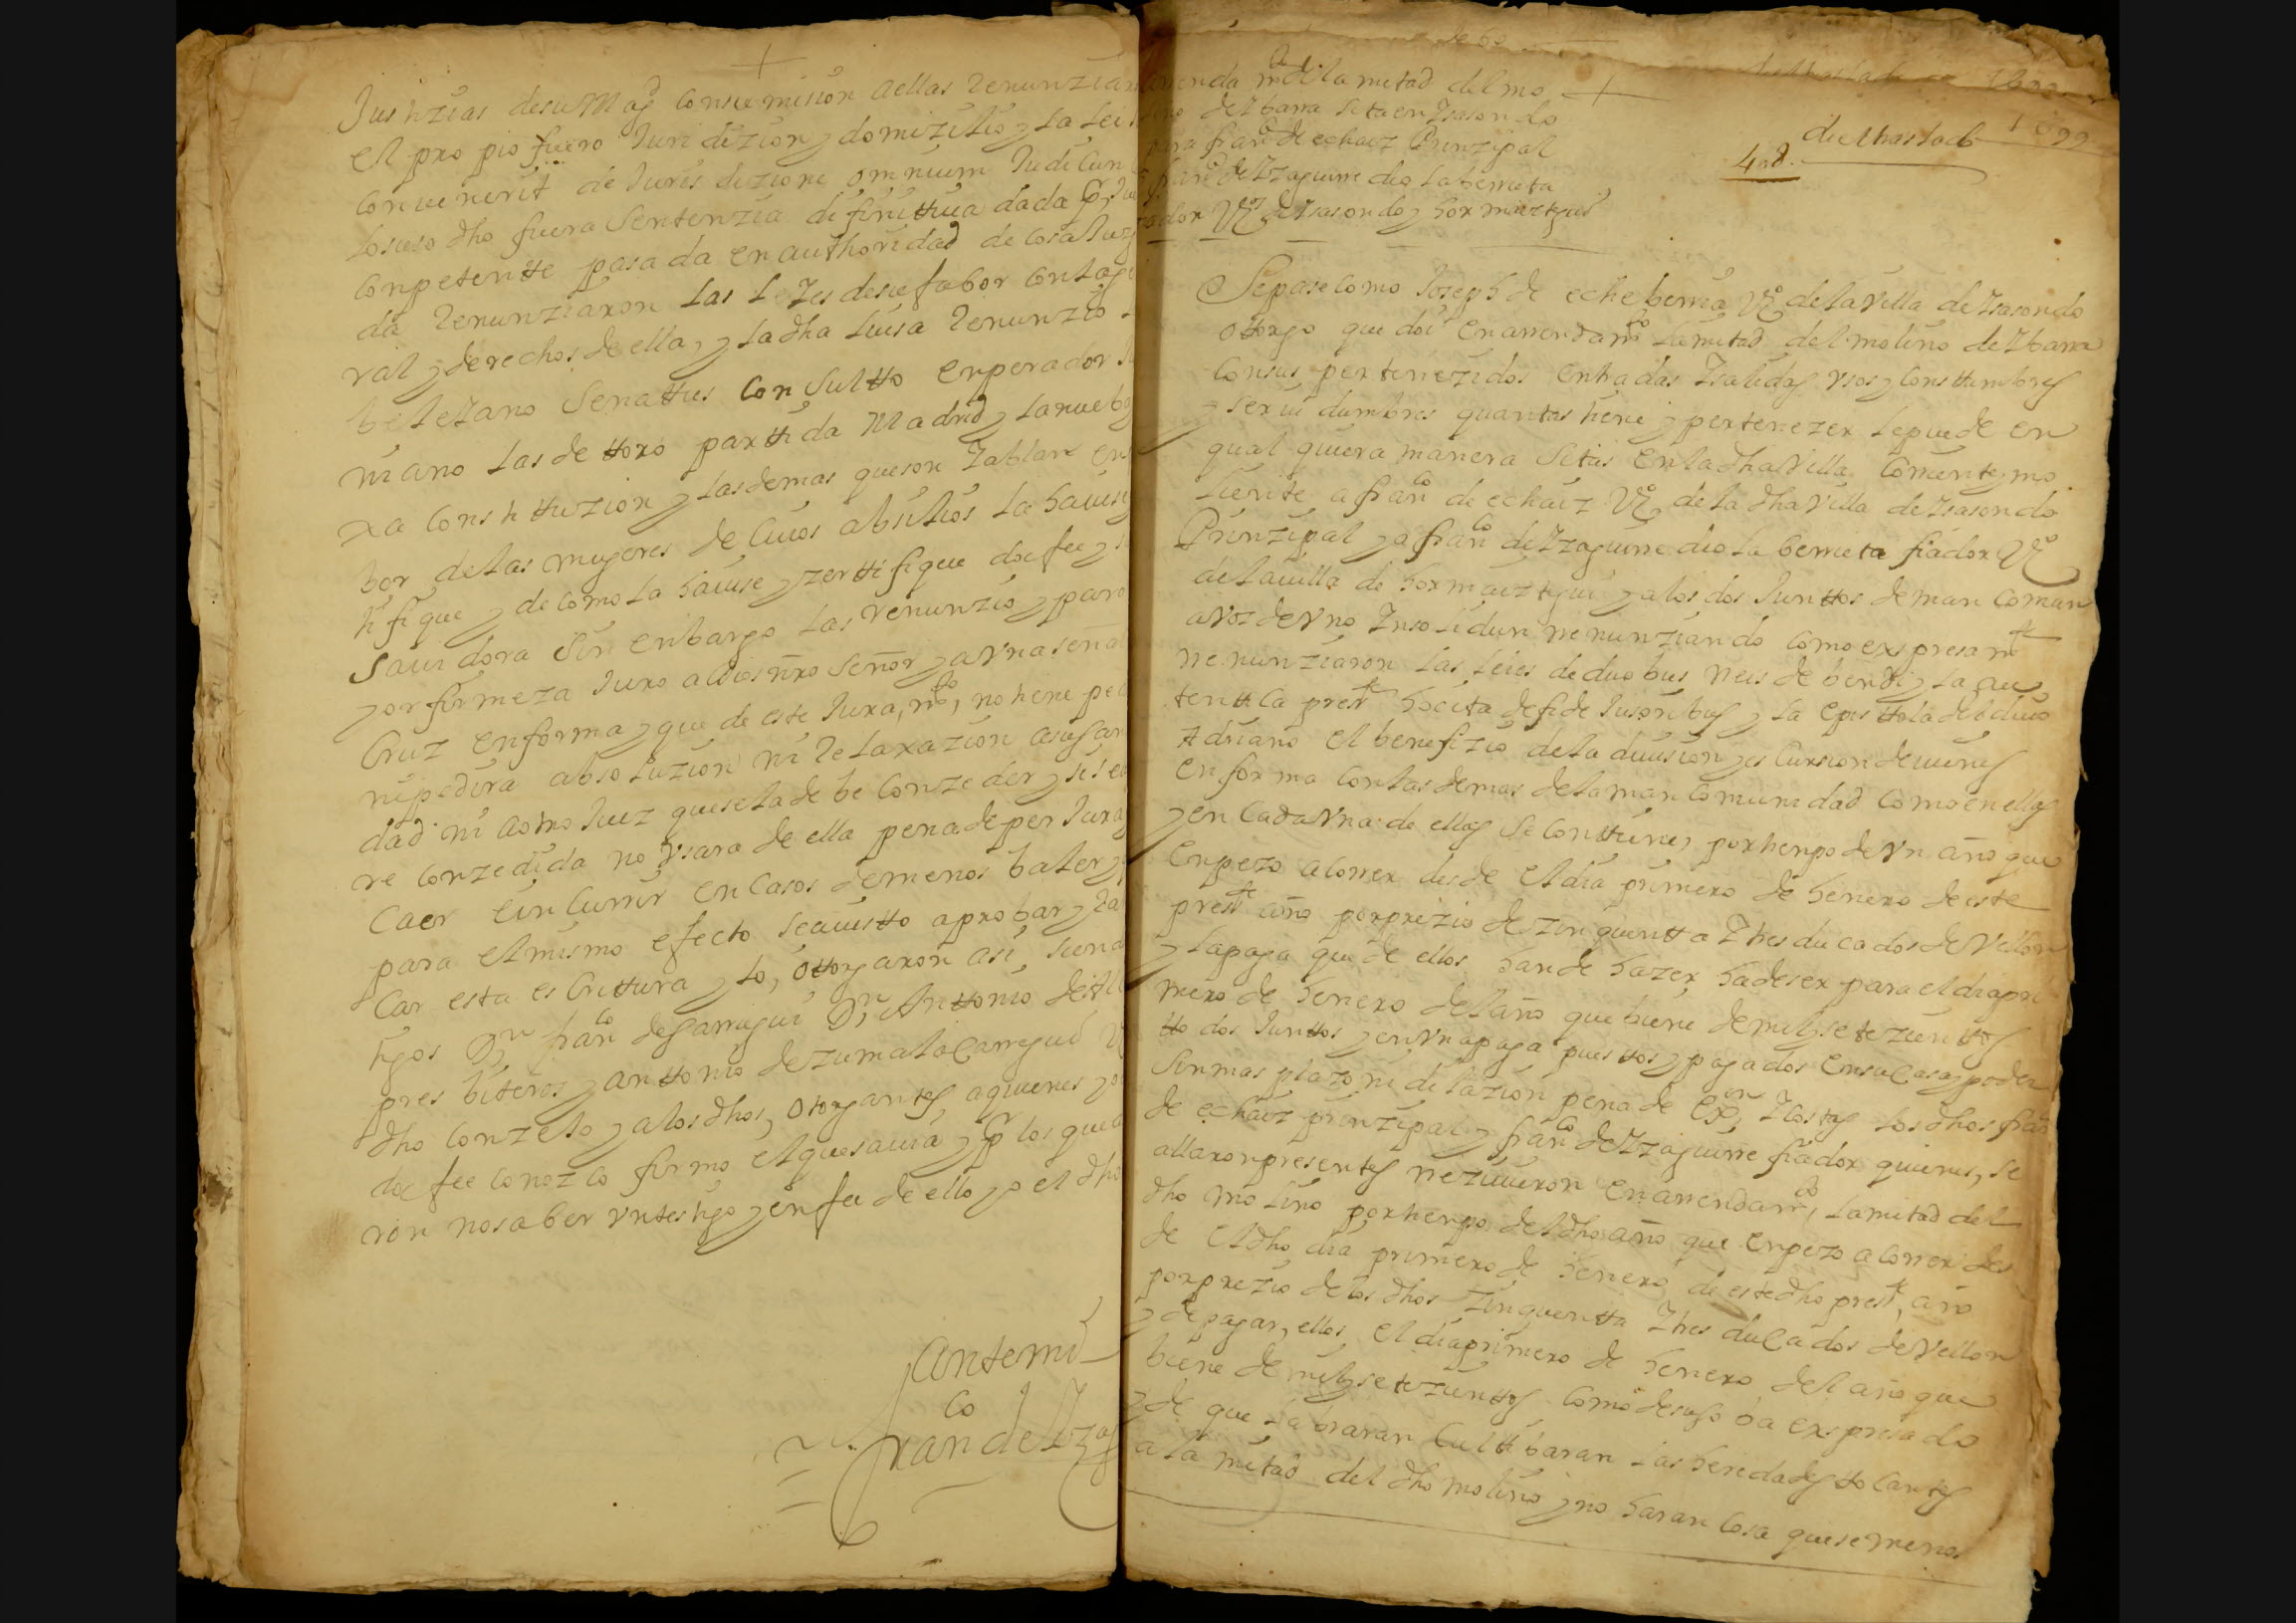 Justizias de su Mag consumision a ellas Renunziar
el propio fuero Juridizion y domizilio y la lei
conuenerit de Juris dizione omnium Judicun
lo suso dho fuera Sentenzia difinittiua dada p Ju
conpetentte pasada en authoridad de cosa Juz
da Renunziaron las leyes de su fabor con la g
ral y derechos de ella, y la dha luisa Renunzio
beleiano Senattus Consultto enperador Ju
niano las de ttoro parttida Madrid y la nueba
xa Constittuzion y las demas que son y ablan en
bor de las mugeres de cuios absilios la hauise
tifique y de como la hauise y zerttifique doi fee y
sauidora sin enbargo las renunzio y para
yor firmeza Juro a Dios nro Señor y a vna señal
Cruz en forma y que de este Jura,mto, no tiene pe
ni pedira absoluzion ni Relaxazion a su San
dad ni a otro Juez que se la debe conzeder y si se
re conzedida no vsara de ella pena de per Jura
Caer e incurrir en casos de menos baler y
para el mismo efecto se auistto aprobar y
Car esta escrittura y lo, ottorgaron asi, siend
tigos Dn franco de Garragui Dn Anttonio de
pres biteros y anttonio de zumalacarregui V
dho conzejo y a los dhos, otorgantes a quienes yo
doi fee conozco firmo el que sauia y p los que
ron no saber vn testigo y en fee de ello yo el dho
Ante mi
Franco de
mto de la mitad del mo
de Ybarra sita en Ysasondo
para franco de echaiz Prinzipal
franco de Yzaguirre dio laberrieta
Vzos de Ysasondo y hormaiztegui
418.
diel hasta ob 1699
Sepase como Joseph de echeberria Vzo de la Villa de Ysasondo
otorgo que doi en arrendamto la mitad del molino de Ybarra
con sus pertenezidos entradas y salidas vsos y consttumbres
y seruidumbres quantas tiene y pertenezer le puede en
qual quiera manera Sitas en la dha Villa, corriente y mo
liente a franco de echaiz Vzo de la dha Villa de Ysasondo
Prinzipal y a franco de Yzaguirre dio laberrieta fiador Vzo
de la uilla de hormaiztegui y a los dos Junttos de man comun
a voz de vno Ynsolidun rrenunziando como expresamte
rrenunziaron las leies de duobus rreis de bendi y la au
tenttica prestte hocita de fide Jusoribus y la epistola del diuo
Adriano el benefizio de la diuision y es Cursion de uienes
en forma con las demas de la man comunidad como en ellas
y en cada vna de ellas se conttiene, por tienpo de vn año que
enpezo a correr desde el dia primero de henero de este
prestte año por prezio de zinquentta y tres ducados de Vellon
y la paga que de ellos han de hazer ha de ser para el dia pri
mero de henero del año que biene de mil y setezienttos
tto dos Junttos y en vna paga puesttos y pagados en su casa y poder
sin mas plazo ni dilazion pena de exon, y costas los dhos franco
de echaiz prinzipal y franco de Yzaguirre fiador quienes, se
allaron presentes rreziuieron en arrendamto, la mitad del
dho molino por tienpo del dho año que enpezo a correr des
de el dho dia primero de henero de este dho prestte, año
por prezio de los dhos zinquentta y tres ducados de Vellon
y de pagar, ellos el dia primero de henero del año que
biene de mil y setezienttos como de suso ba expresado
y de que labraran culttibaran las heredades ttocantes
a la mitad del dho molino y no haran cosa que se menos